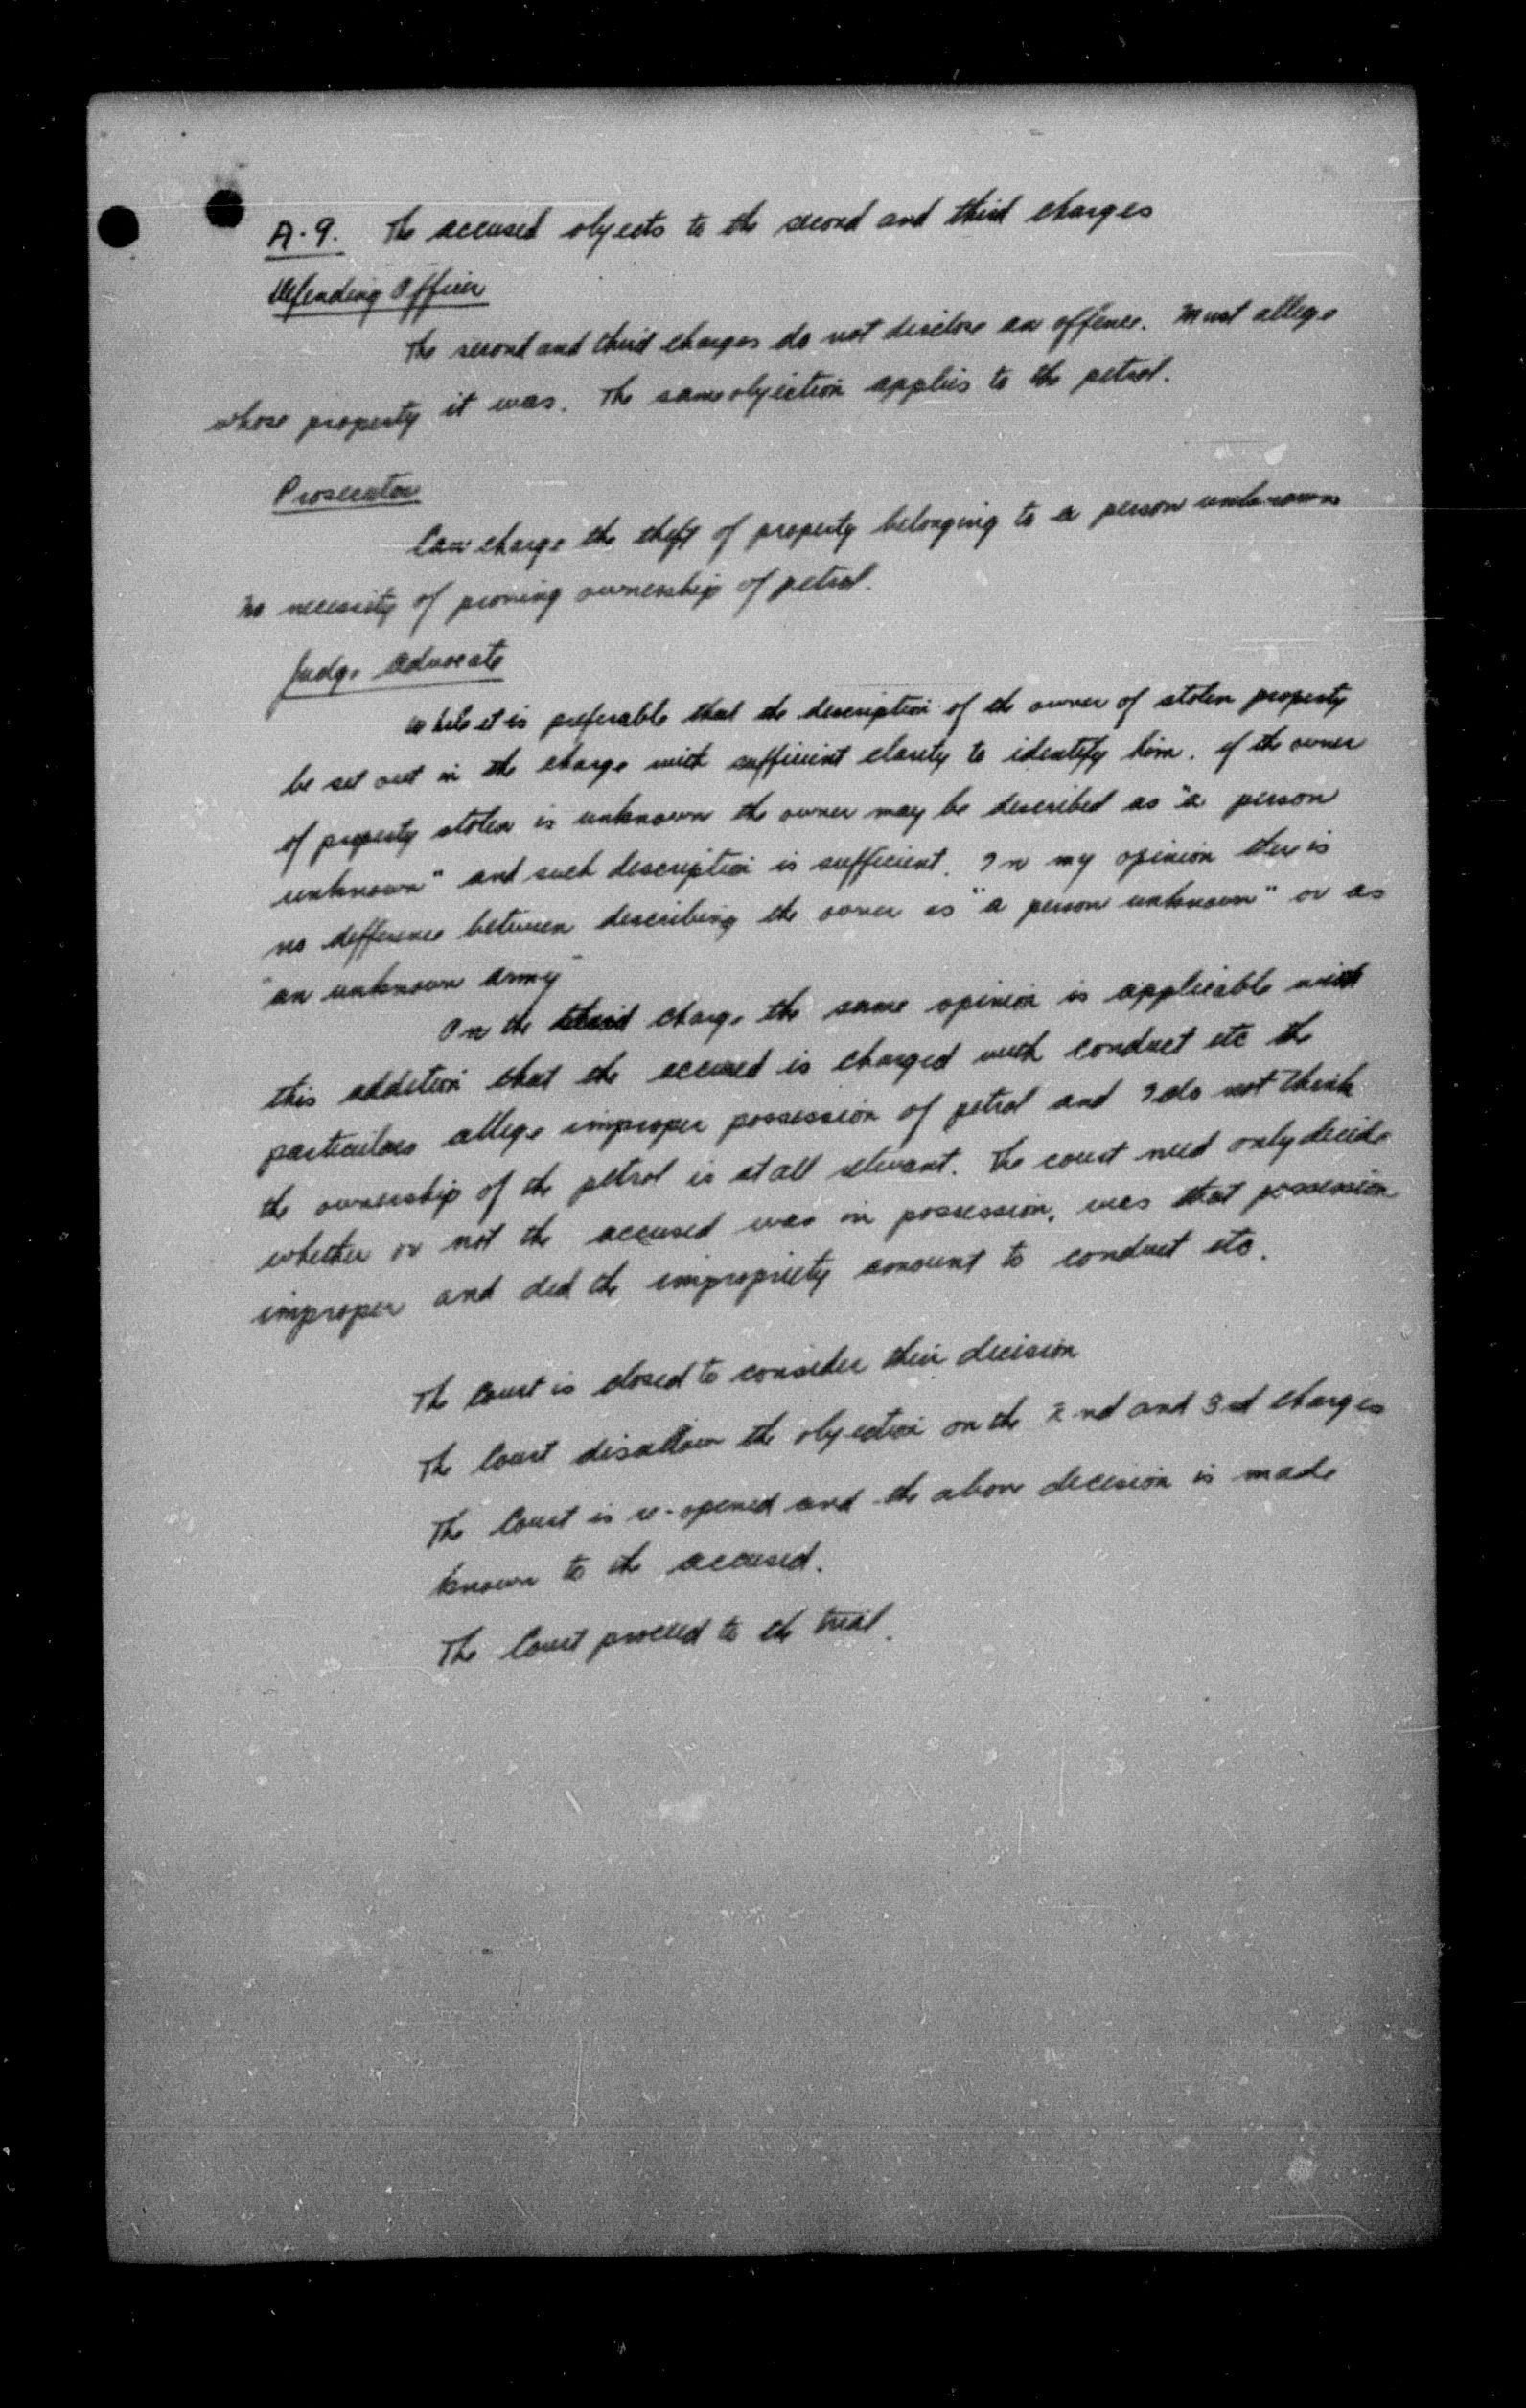 A.9. The accused objects to the second and third charges
Defending Officer
The second and third charges do not disclose an offence. Must allege
whose property it was. The same objection applies to the petrol.
Prosecutor
Can charge the theft of property belonging to a person unknown
No necessity of proving ownership of petrol.
Judge Advocate
While it is preferable that the description of the owner of stolen property
be set out in the charge with sufficient clarity to identify him. If the owner
of property stolen is unknown the owner may be described as "a person
unknown" and such description is sufficient. In my opinion there is
no difference between describing the owner as "a person unknown" or as
"an unknown army"
On the third charge the same opinion is applicable with
this addition that the accused is charged with conduct etc the
particulars allege improper possession of petrol and I do not think
the ownership of the petrol is at all relevant. The court need only decide
whether or not the accused was in possession, was that possession
improper and did the impropriety amount to conduct etc.
The Court is closed to consider their decision
The Court disallow the objection on the 2nd and 3rd charges
The Court is re-opened and the above decision is made
known to the accused.
The Court proceed to the trial.